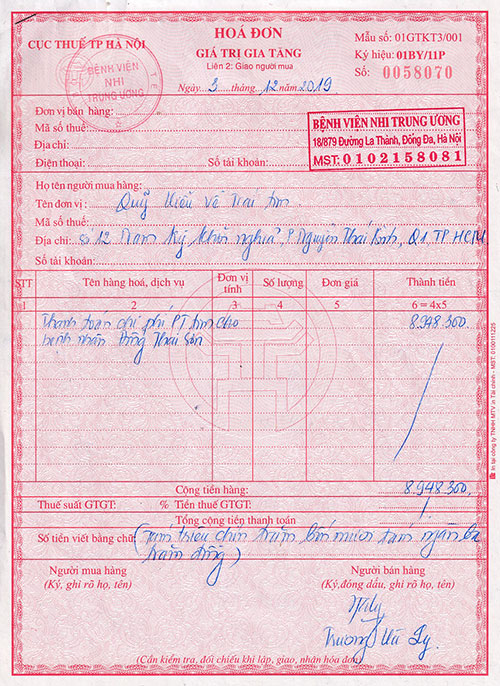 CỤC THUẾ TP HÀ NỘI
HOÁ ĐƠN
GIÁ TRỊ GIA TĂNG
Liên 2: Giao người mua
Ngày 3 tháng 12 năm 2019
Mẫu số: 01GTKT3/001
Ký hiệu: 01BY/11P
Số: 0058070
BỆNH VIỆN
NHI
TRUNG ƯƠNG
Đơn vị bán hàng:
Mã số thuế:
Địa chỉ:
Điện thoại: Số tài khoản:
BỆNH VIỆN NHI TRUNG ƯƠNG
18/879 Đường La Thành, Đống Đa, Hà Nội
MST: 0102158081
Họ tên người mua hàng:
Tên đơn vị: Quỹ Hiểu về Trái tim
Mã số thuế:
Địa chỉ: Số 12 Nam Kỳ Khởi nghĩa, P. Nguyễn Thái Bình, Q1 TP HCM
Số tài khoản:
STT Tên hàng hoá, dịch vụ Đơn vị tính Số lượng Đơn giá Thành tiền
1 2 3 4 5 6 = 4x5
Thanh toán chi phí PT tim cho 8.948.300
bệnh nhân Đồng Thái Sơn
Cộng tiền hàng: 8.948.300
Thuế suất GTGT: % Tiền thuế GTGT: /
Tổng cộng tiền thanh toán
Số tiền viết bằng chữ: (Tám triệu chín trăm bốn mươi tám ngàn ba
trăm đồng)
Người mua hàng
(Ký, ghi rõ họ, tên)
Người bán hàng
(Ký, đóng dấu, ghi rõ họ, tên)
Trương Hà Ly
(Cần kiểm tra, đối chiếu khi lập, giao, nhận hoá đơn)
In tại công ty TNHH MTV in Tài chính - MST: 0100111225